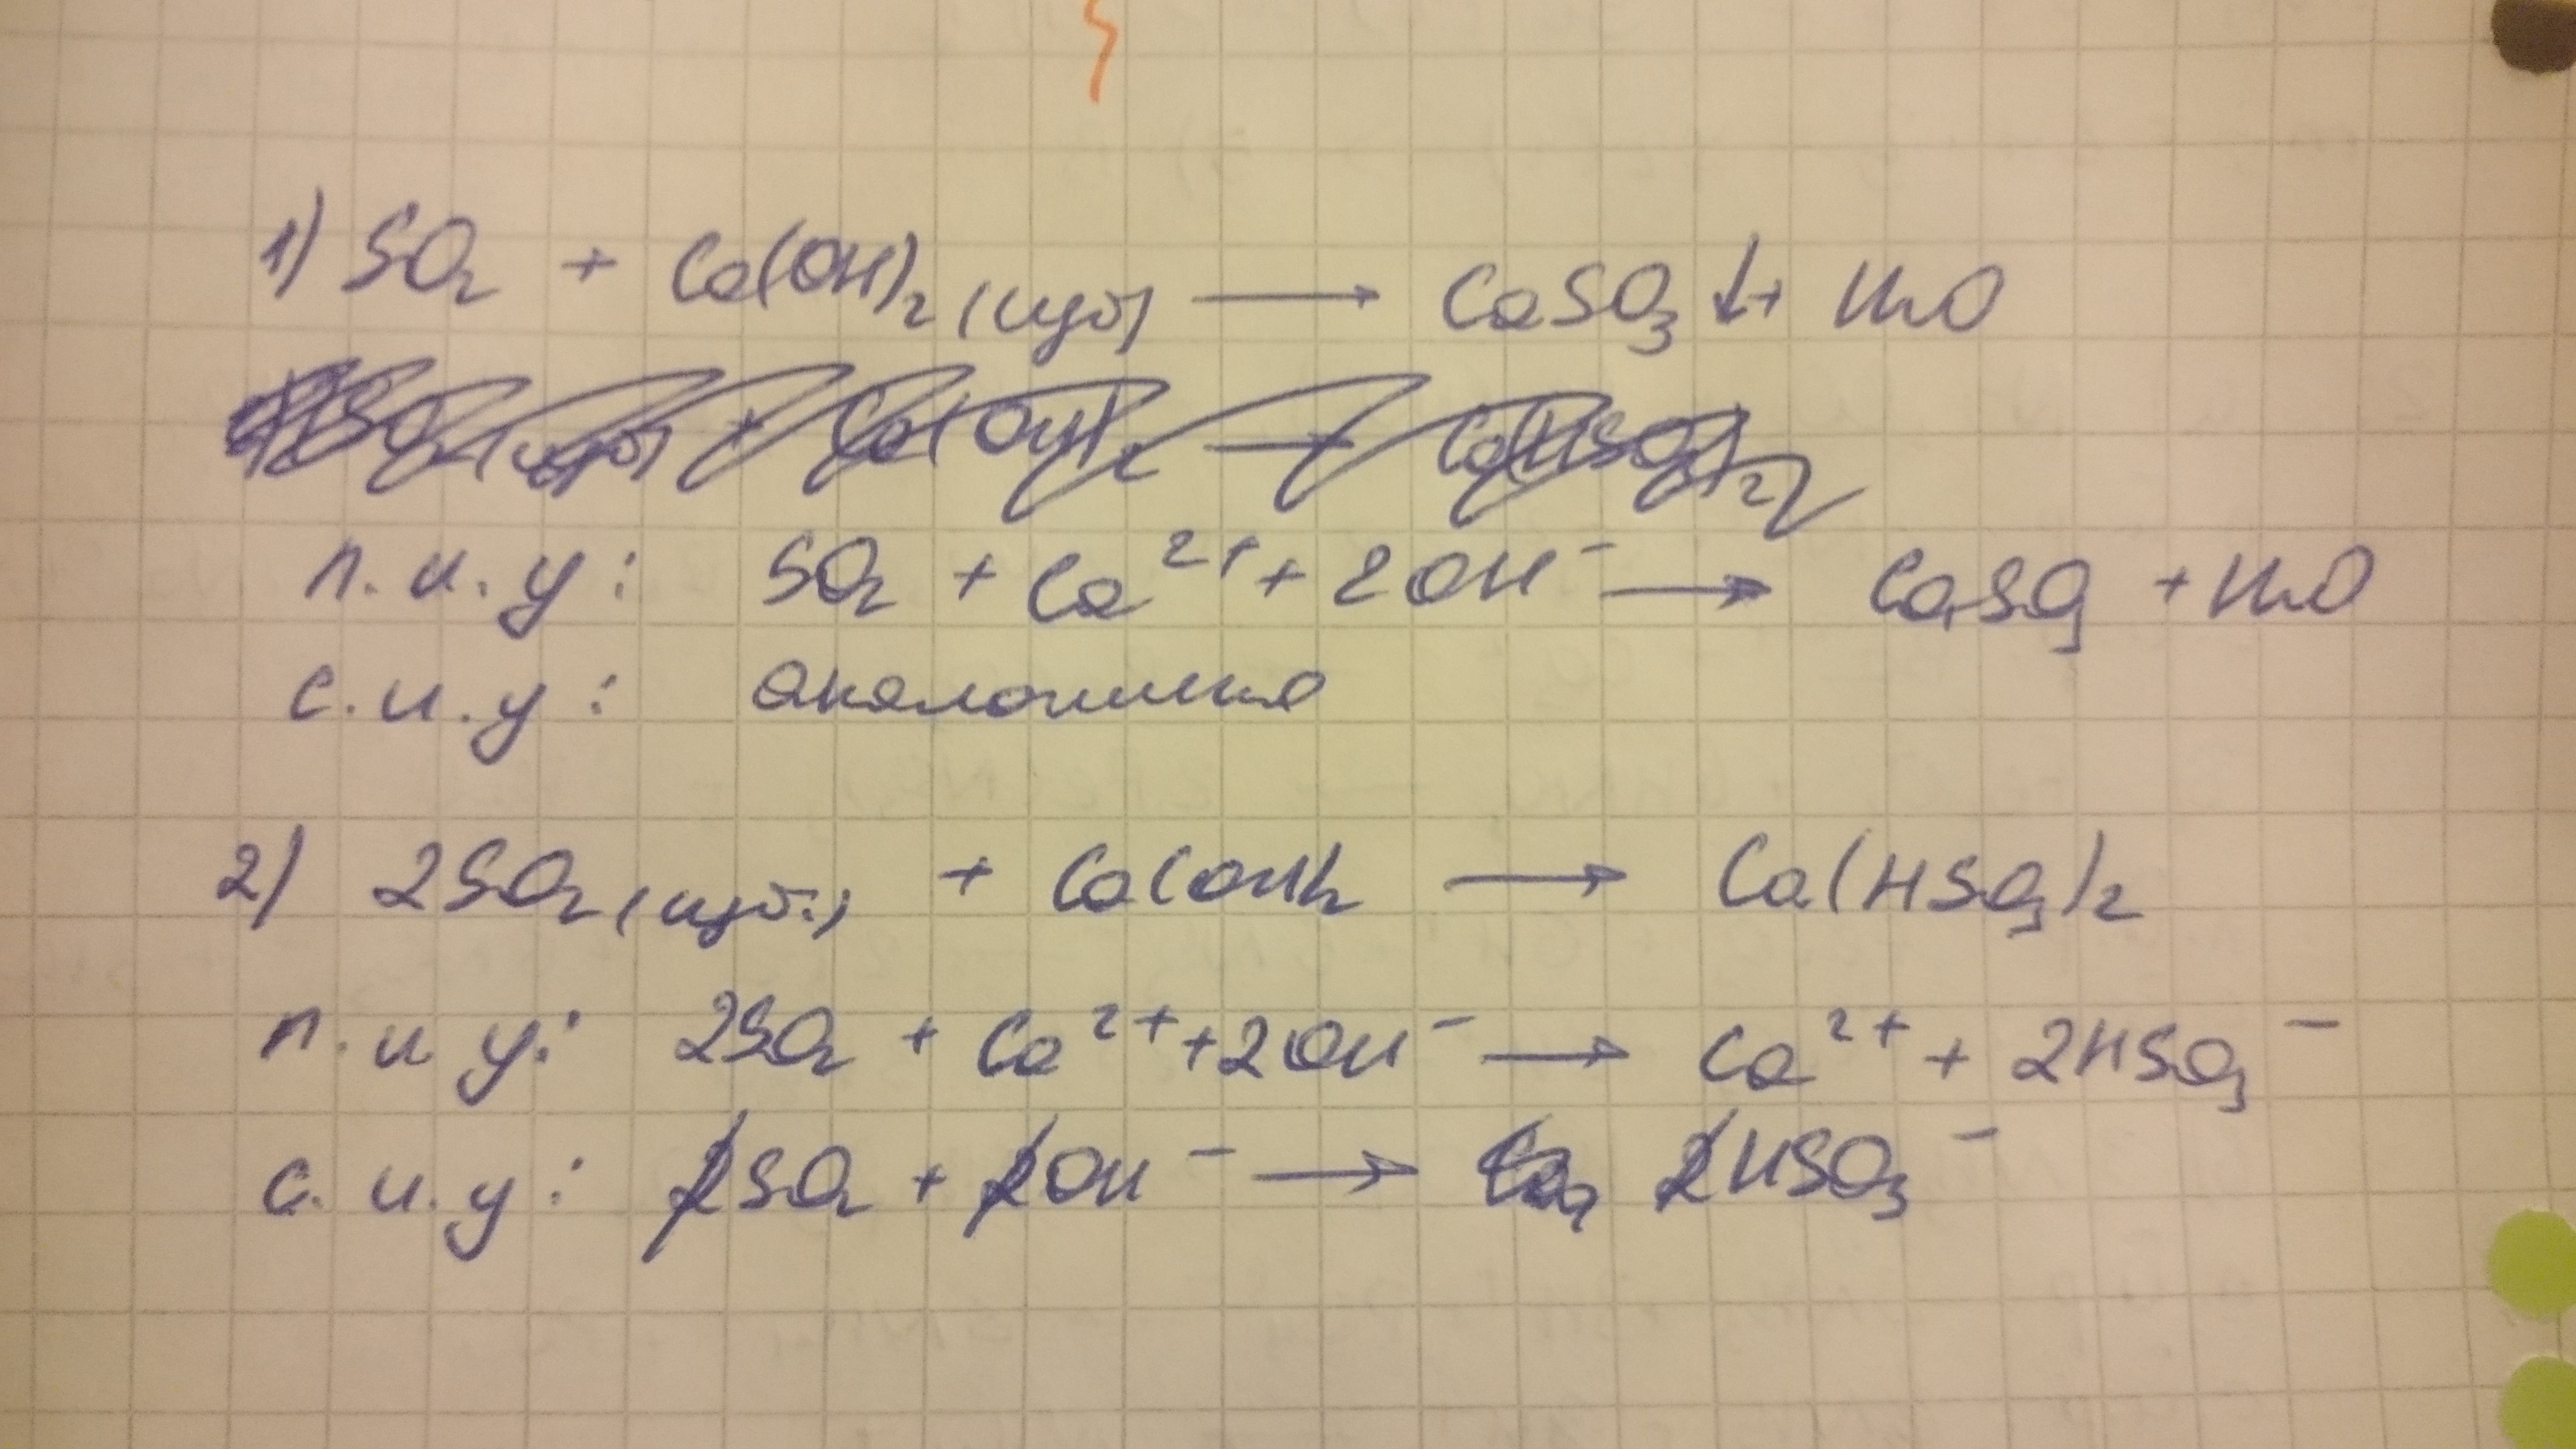 1) SO₂ + Ca(OH)₂ (изб) ⟶ CaSO₃↓ + H₂O
SO₂ (изб) + Ca(OH)₂ ⟶ Ca(HSO₃)₂
п.и.у: SO₂ + Ca²⁺ + 2OH⁻ ⟶ CaSO₃ + H₂O
с.и.у: аналогично
2) 2SO₂ (изб.) + Ca(OH)₂ ⟶ Ca(HSO₃)₂
п.и у: 2SO₂ + Ca²⁺ + 2OH⁻ ⟶ Ca²⁺ + 2HSO₃⁻
с.и.у: SO₂ + OH⁻ ⟶ HSO₃⁻